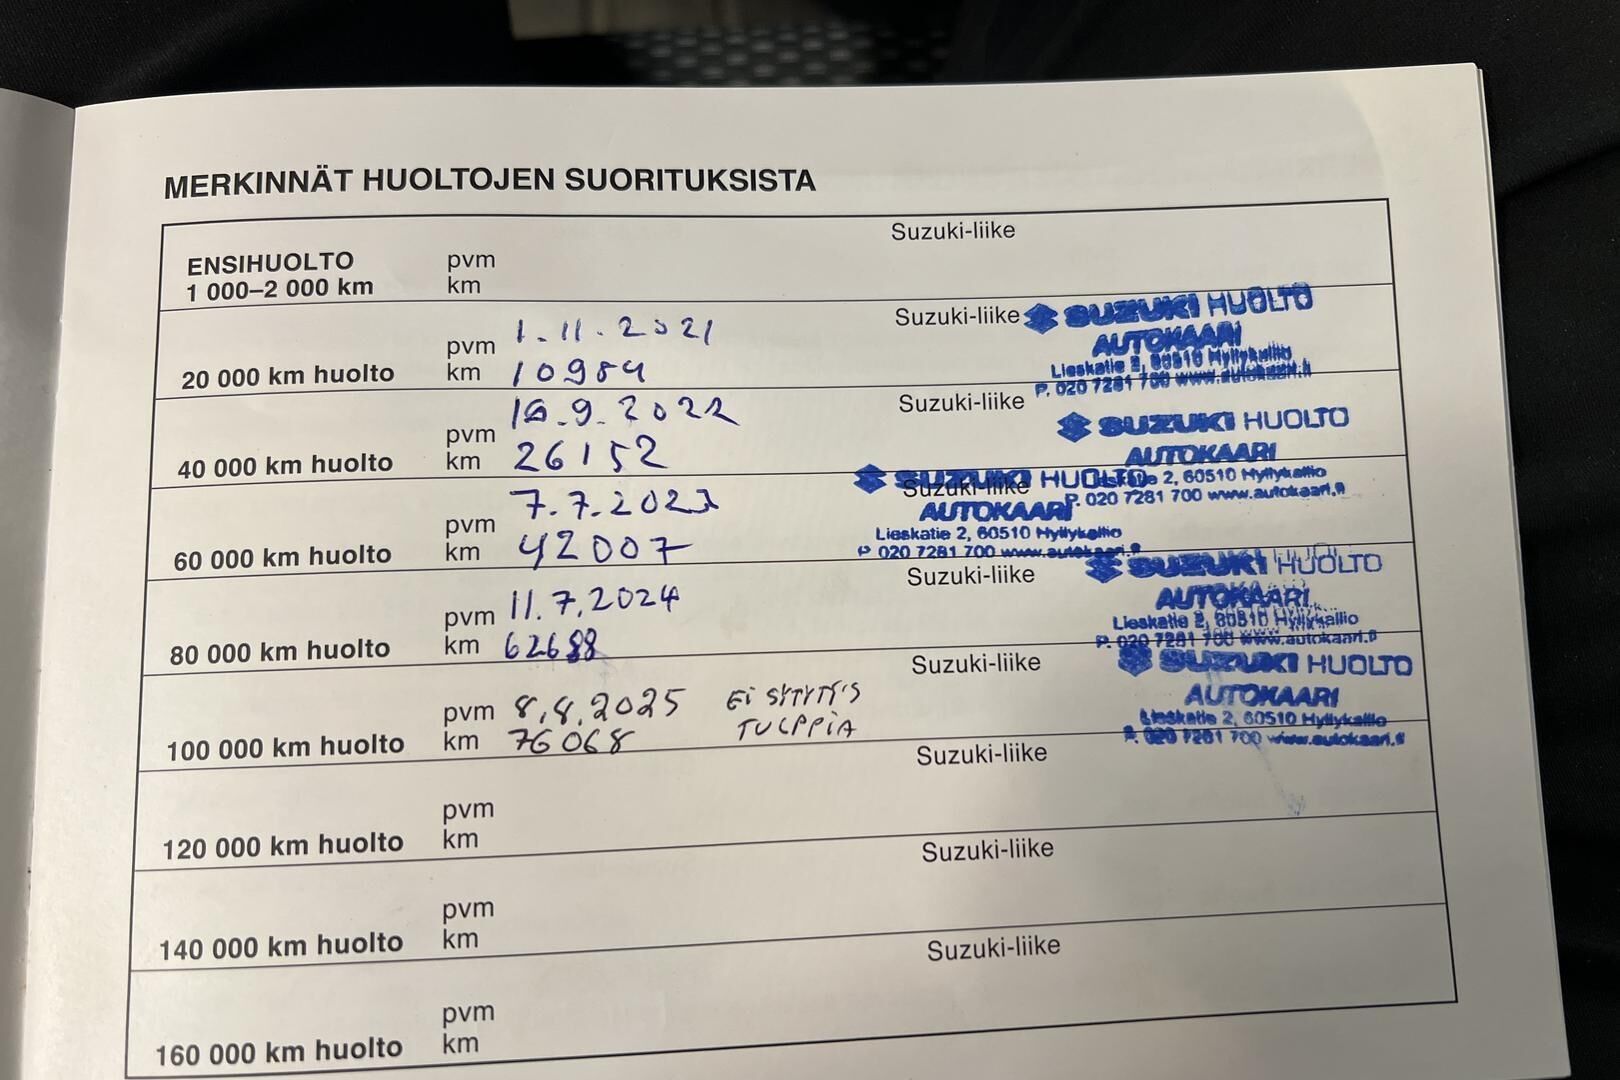 MERKINNÄT HUOLTOJEN SUORITUKSISTA
Suzuki-liike
ENSIHUOLTO pvm
1 000–2 000 km km
Suzuki-liike SUZUKI HUOLTO
AUTOKAARI
Lieskatie 2, 60510 Hyllykallio
P. 020 7281 700 www.autokaari.fi
pvm 1.11.2021
20 000 km huolto km 10984
Suzuki-liike SUZUKI HUOLTO
AUTOKAARI
Lieskatie 2, 60510 Hyllykallio
P. 020 7281 700 www.autokaari.fi
pvm .9.2022
40 000 km huolto km 26152
Suzuki-liike SUZUKI HUOLTO
AUTOKAARI
Lieskatie 2, 60510 Hyllykallio
P 020 7281 700 www.autokaari.fi
pvm 7.7.2023
60 000 km huolto km 42007
Suzuki-liike SUZUKI HUOLTO
AUTOKAARI
Lieskatie 2, 60510 Hyllykallio
P. 020 7281 700 www.autokaari.fi
pvm 11.7.2024
80 000 km huolto km 62688
Suzuki-liike SUZUKI HUOLTO
AUTOKAARI
Lieskatie 2, 60510 Hyllykallio
P. 020 7281 700 www.autokaari.fi
pvm 8.8.2025 Ei SYTYTYS
100 000 km huolto km 76068 TULPPIA
Suzuki-liike
pvm
120 000 km huolto km
Suzuki-liike
pvm
140 000 km huolto km
Suzuki-liike
pvm
160 000 km huolto km